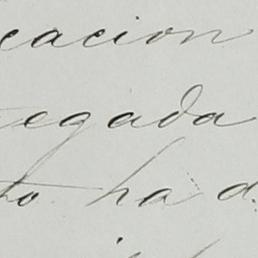 cacion
egada
to ha d